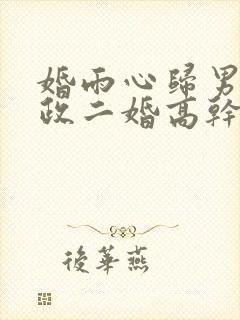 婚雨心歸男
政二婚高幹
後華燕